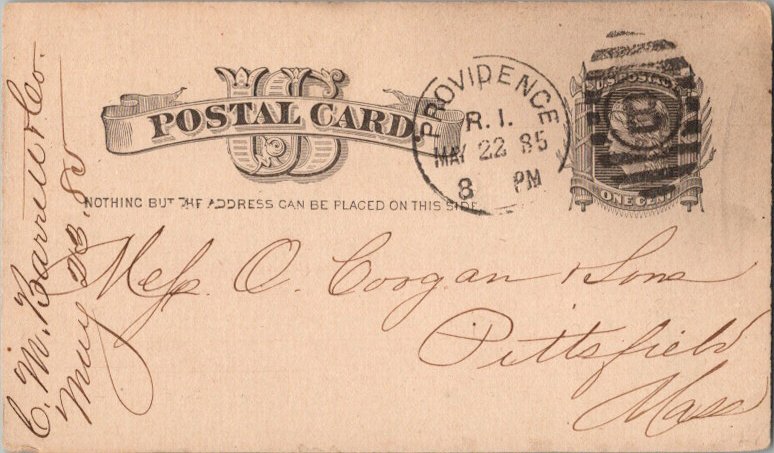 US
POSTAL CARD
NOTHING BUT THE ADDRESS CAN BE PLACED ON THIS SIDE
PROVIDENCE
R. I.
MAY 22 85
8 PM
U.S. POSTAGE
ONE CENT
Mess. O. Coogan & Sons
Pittsfield
Mass
C. M. & Co.
May 23. 85